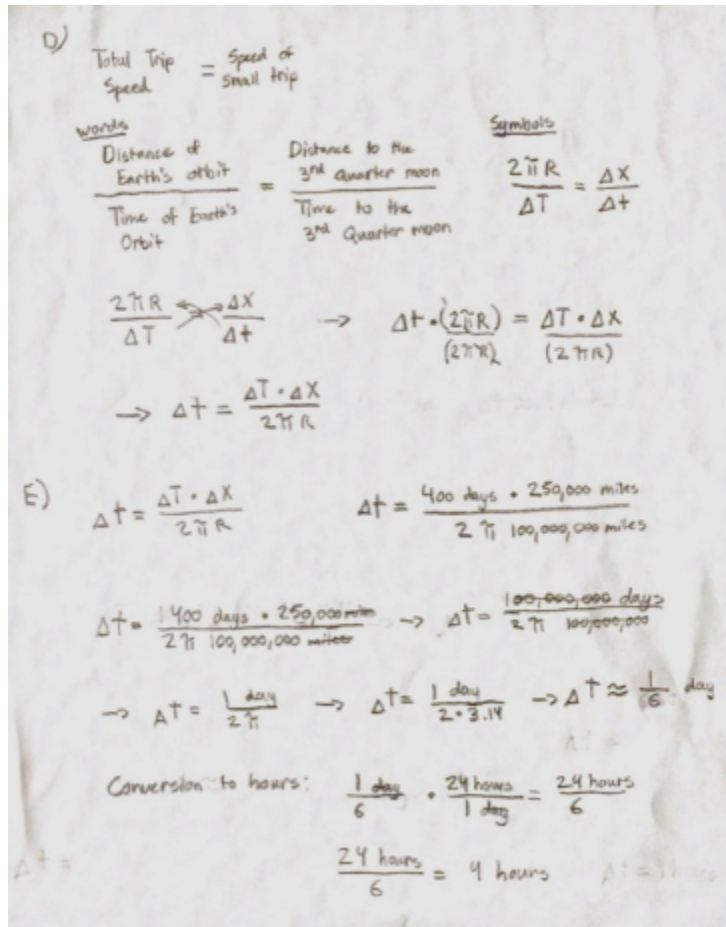 D)
Total Trip Speed = Speed of small trip
words
Distance of Earth's orbit / Time of Earth's Orbit = Distance to the 3rd quarter moon / Time to the 3rd Quarter moon
Symbols
2πR / ΔT = ΔX / Δt
2πR / ΔT ΔX / Δt → Δt · (2πR) / (2πR) = ΔT · ΔX / (2πR)
→ Δt = ΔT · ΔX / 2πR
E)
Δt = ΔT · ΔX / 2πR
Δt = 400 days · 250,000 miles / 2π 100,000,000 miles
Δt = 400 days · 250,000 miles / 2π 100,000,000 miles → Δt = 100,000,000 days / 2π 100,000,000
→ Δt = 1 day / 2π → Δt = 1 day / 2 · 3.14 → Δt ≈ 1/6 day
Conversion to hours: 1 day / 6 · 24 hours / 1 day = 24 hours / 6
24 hours / 6 = 4 hours